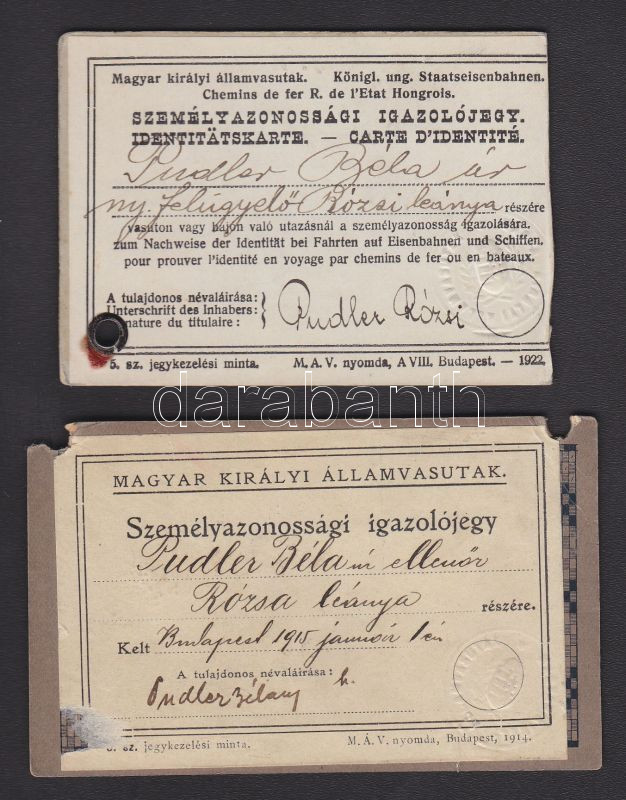 Magyar királyi államvasutak. Königl. ung. Staatseisenbahnen.
Chemins de fer R. de l'Etat Hongrois.
SZEMÉLYAZONOSSÁGI IGAZOLÓJEGY.
IDENTITÄTSKARTE. — CARTE D'IDENTITÉ.
Pudler Béla úr
ny. felügyelő Rózsi leánya részére
vasuton vagy hajón való utazásnál a személyazonosság igazolására.
zum Nachweise der Identität bei Fahrten auf Eisenbahnen und Schiffen.
pour prouver l'identité en voyage par chemins de fer ou en bateaux.
A tulajdonos névaláirása:
Unterschrift des Inhabers:
nature du titulaire:
Pudler Rózsi
5. sz. jegykezelési minta. M. A. V. nyomda, A VIII. Budapest. — 1922.
darabanth
MAGYAR KIRÁLYI ÁLLAMVASUTAK.
Személyazonossági igazolójegy
Pudler Béla úr ellenőr
Rózsa leánya részére.
Kelt Budapest 1915 január 1én
A tulajdonos névaláirása:
Pudler Béla
sz. jegykezelési minta. M. Á. V. nyomda, Budapest, 1914.